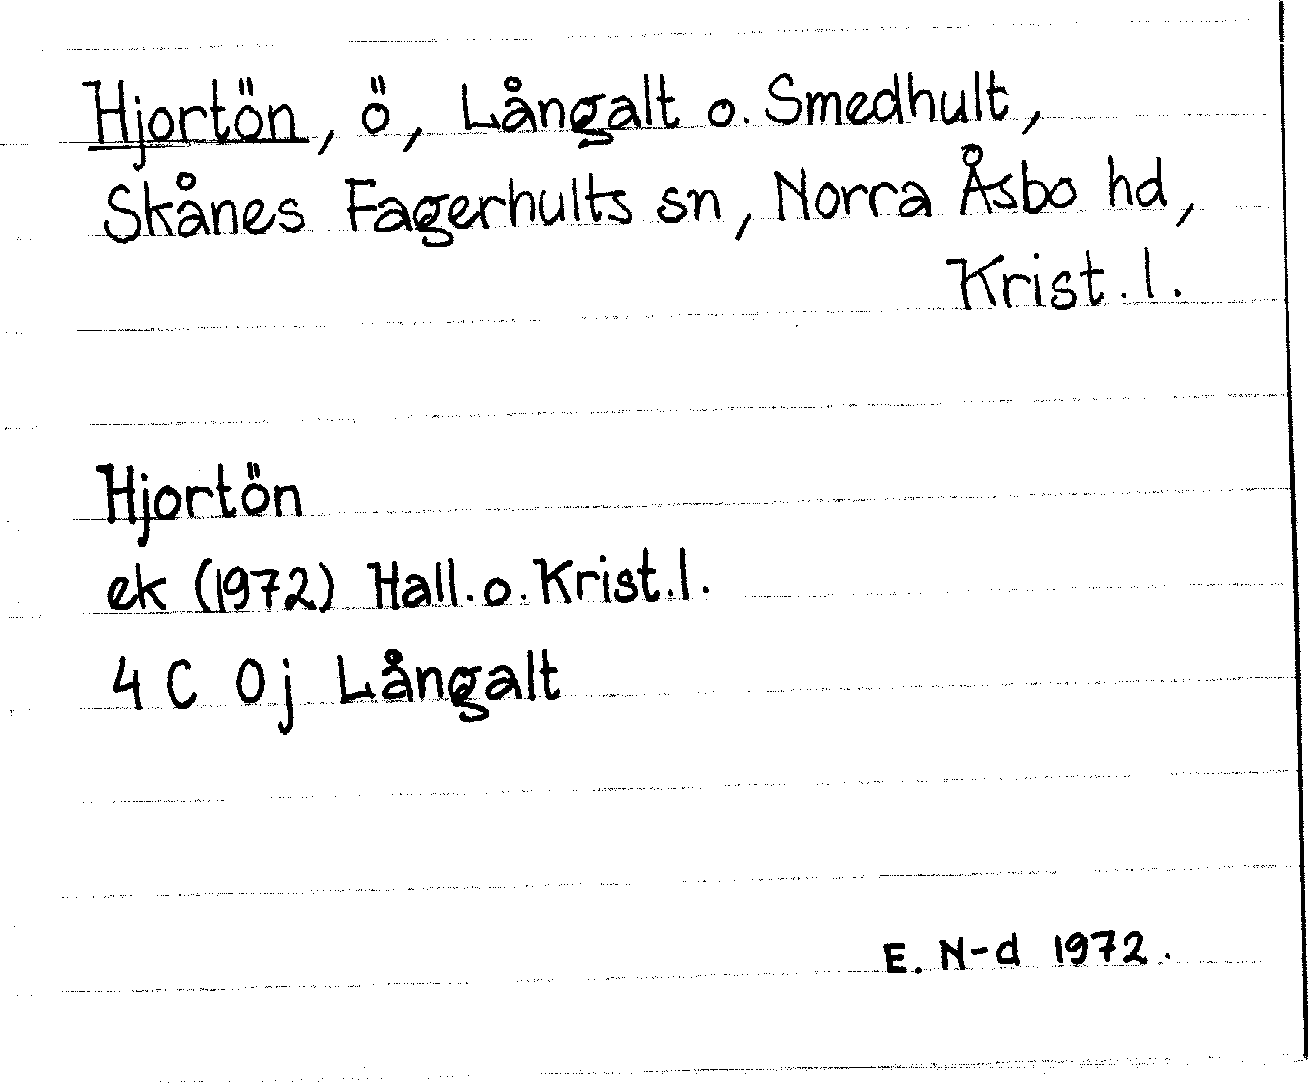 Hjortön, ö, Långalt o. Smedhult,
Skånes Fagerhults sn, Norra Åsbo hd,
Krist. l.
Hjortön
ek (1972) Hall. o. Krist. l.
4 C 0j Långalt
E. N-d 1972.